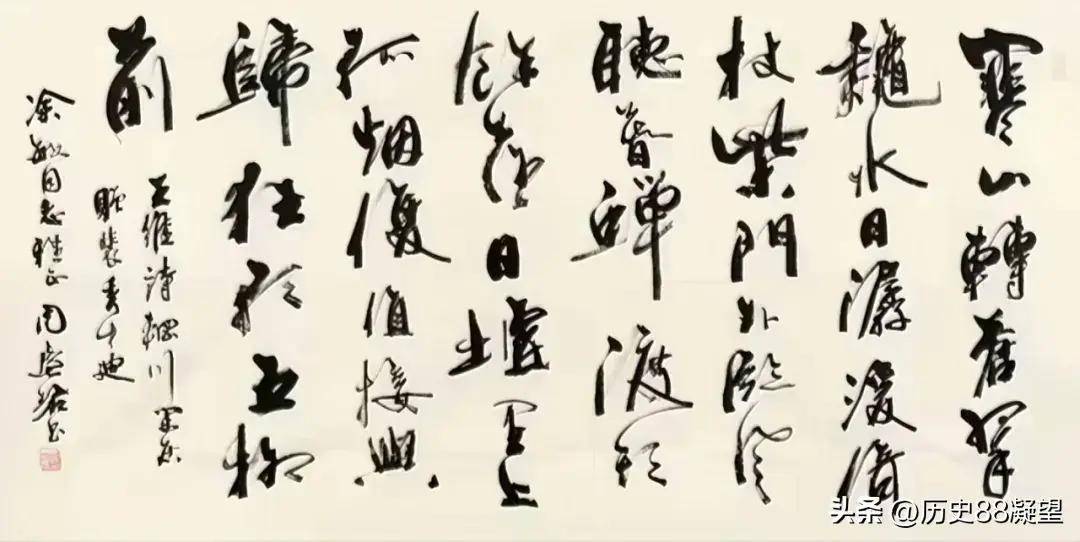 寒山轉蒼翠
龝水日潺湲倚
杖柴門外臨風
聽暮蟬渡頭
餘落日墟里上
孤烟復值接輿
歸狂歌五柳
前
王維詩輞川閑居
贈裴秀才迪
涂敏同志雅正 周慧珺书
头条 @历史88凝望